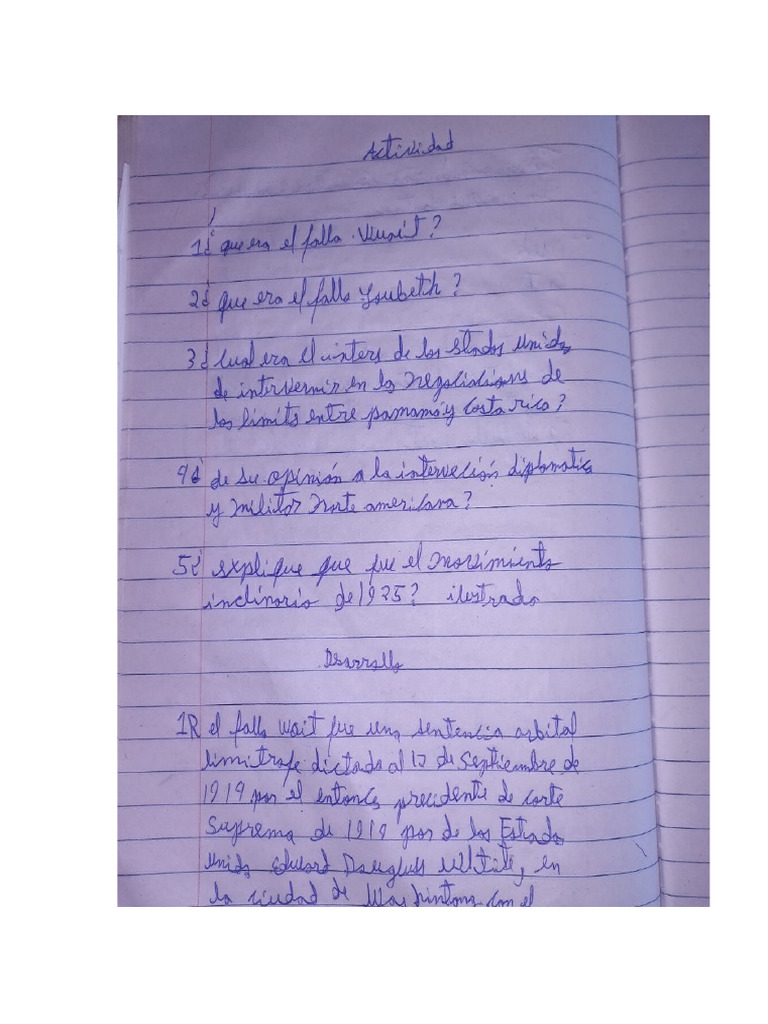 Actividad
1¿ que era el fallo Wuait?
2¿ que era el fallo Loubeth?
3¿ cual era el inters de los Stados Unidos
de intervernir en las negociacions de
los limits entre panamá y costa rica?
4¿ de su opinión a la interveción diplomatica
y militar norte americana?
5¿ explique que fue el movimiento
inclinario de 1925? ilustrado
Dsarrollo
1R el fallo Wait fue una sentencia arbital
limitrofe dictada al 12 de Septiembre de
1914 por el entonces precidente de corte
Suprema de 1914 por de los Estados
Unidos Edward Douglass, en
la ciudad de con el